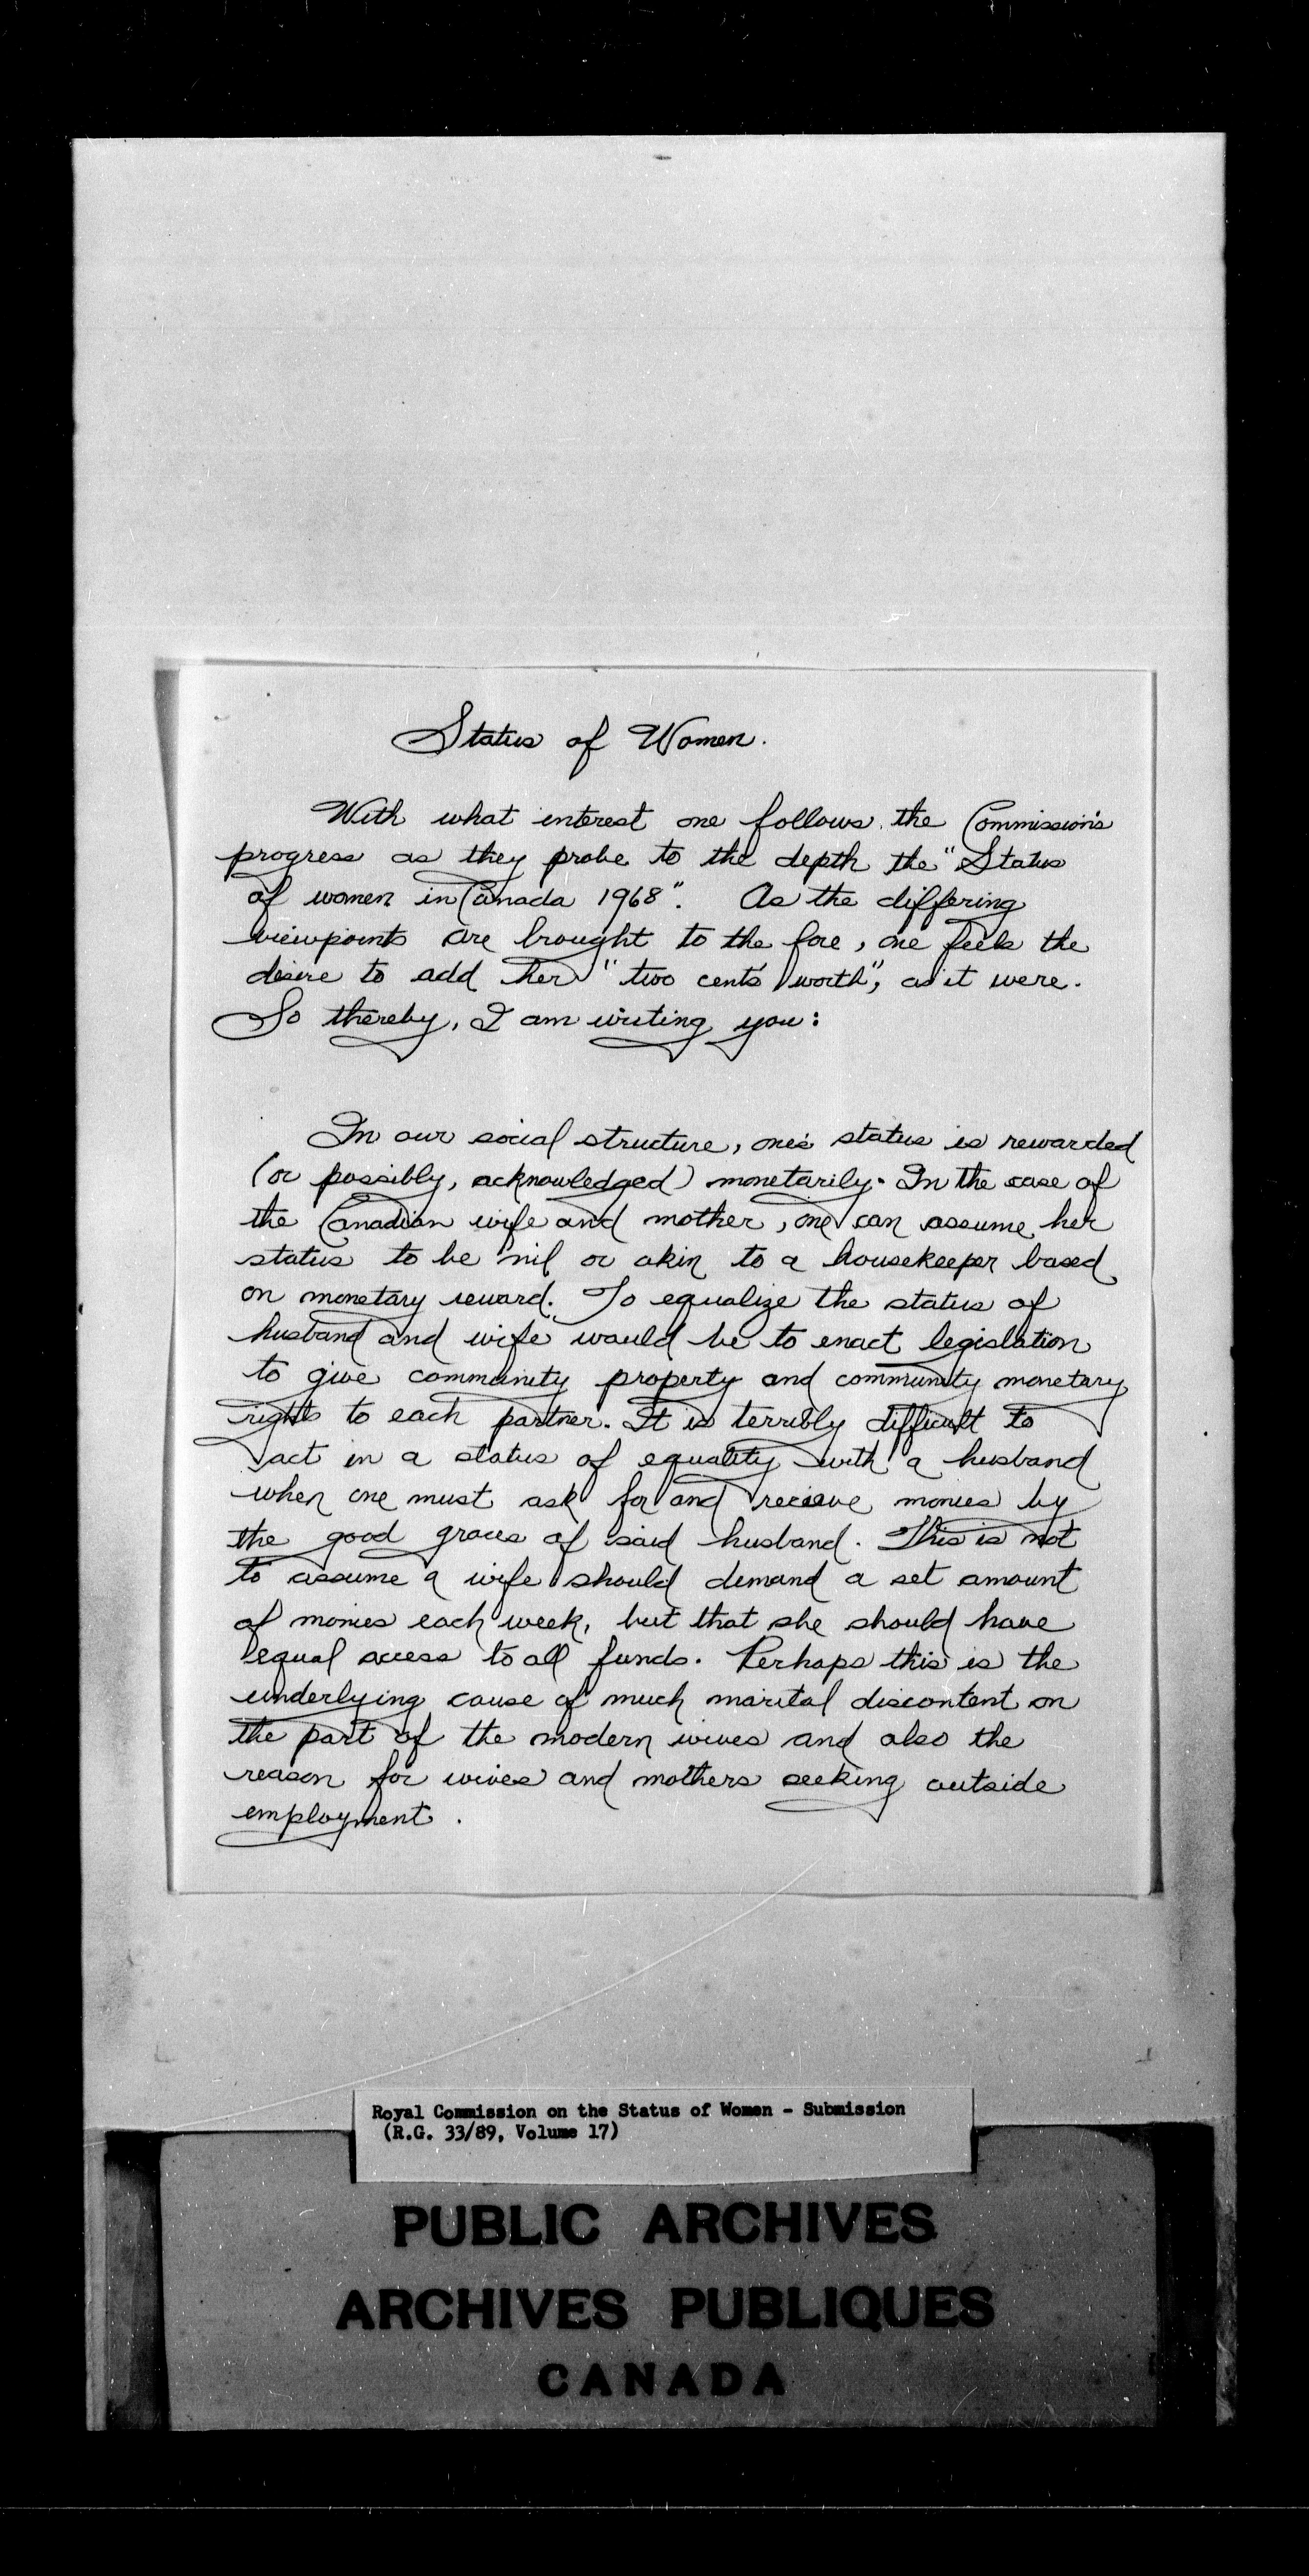 Status of Women.
With what interest one follows the Commission's
progress as they probe to the depth the "Status
of women in Canada 1968". As the differing
viewpoints are brought to the fore, one feels the
desire to add her "two cents' worth", as it were.
So thereby, I am writing you:
In our social structure, one's status is rewarded
(or possibly, acknowledged) monetarily. In the case of
the Canadian wife and mother, one can assume her
status to be nil or akin to a housekeeper based
on monetary reward. To equalize the status of
husband and wife would be to enact legislation
to give community property and community monetary
rights to each partner. It is terribly difficult to
act in a status of equality with a husband
when one must ask for and recieve monies by
the good graces of said husband. This is not
to assume a wife should demand a set amount
of monies each week, but that she should have
equal access to all funds. Perhaps this is the
underlying cause of much marital discontent on
the part of the modern wives and also the
reason for wives and mothers seeking outside
employment.
Royal Commission on the Status of Women - Submission
(R.G. 33/89, Volume 17)
PUBLIC ARCHIVES
ARCHIVES PUBLIQUES
CANADA